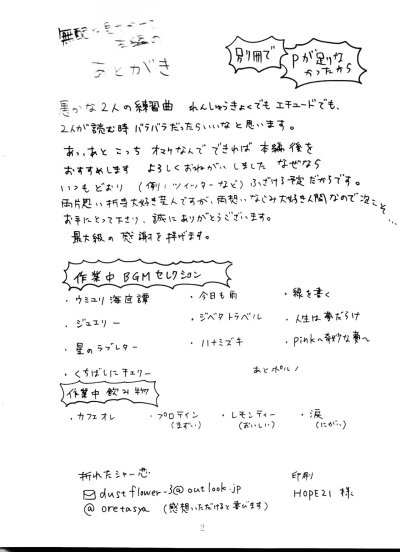 あとがき
別冊で
Pが足りな
かったから
愚かな2人の練習曲 れんしゅうきょくでも エチュードでも、
2人が読む時 バラバラだったらいいなと思います。
あっ、あと こっち オマケなんで できれば 本編 後を
おすすめします よろしくおねがいしました なぜなら
いつもどおり (例:ツイッターなど) ふざける予定だからです。
両片思い 大好き芸人ですが、両想い なじみ大好き人間なので次こそ…
お手にとって下さり、誠にありがとうございます。
最大級の感謝を捧げます。
作業中 BGM セレクション
・ウミユリ海底譚
・今日も雨
・線を書く
・ジュエリー
・ジベタトラベル
・人生は夢だらけ
・星のラブレター
・ハナミズキ
・pinkへ奇妙な夢へ
・くちばしにチェリー
あとポルノ
作業中 飲み物
・カフェオレ
・プロテイン
(まずい)
・レモンティー
(おいしい)
・涙
(にがい)
折れたシャー恋
dustflower-3@outlook.jp
@oretasya (感想いただけると喜びます)
印刷
HOPE21 様
2